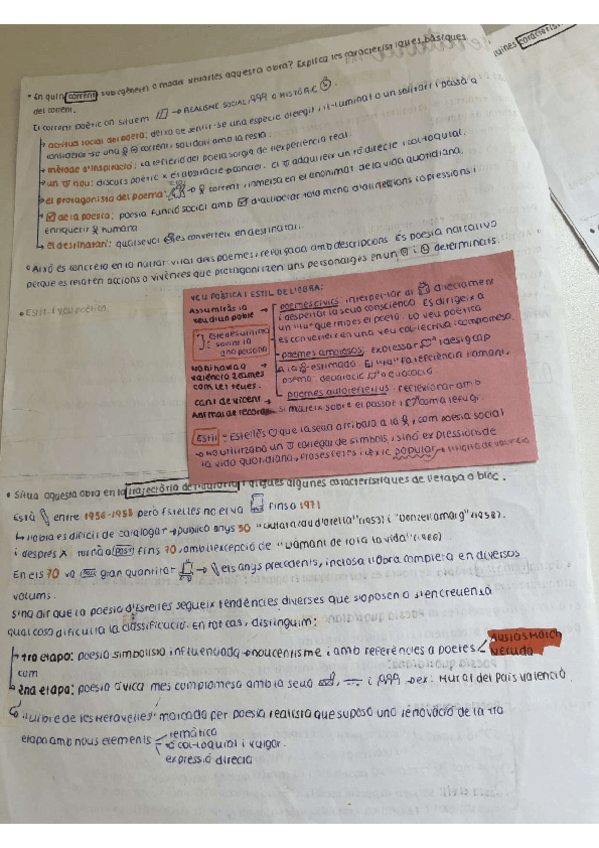 • En quin corrent, subgèneres o model s'ubica aquesta obra? Explica les característiques bàsiques
del corrent.
quines característi
El corrent poètic on situem → REALISME SOCIAL, o HISTÒRIC
→ actitud social del poeta: deixa de sentir-se una espècie d'elegit i il·luminat o un solitari i passa a
considerar-se una corrent, solidari amb la resta.
→ mètode d'inspiració: la reflexió del poeta sorgia de l'experiència real.
→ un nou: discurs poètic elaboració planera. El adquireix un to directe i col·loquial.
→ el protagonista del poema: → corrent, immersa en l'anonimat de la vida quotidiana.
→ de la poesia: poesia funció social amb d'alliberar tota mena d'alienacions i opressions i
enriquir humana
→ el destinatari: qualsevol es converteix en destinatari.
• Això es concreta en la narrativitat dels poemes, reforçada amb descripcions. Es poesia narrativa
perquè es relaten accions o vivències que protagonitzen uns personatges en un i determinats.
• Estil i veu poètica.
VEU POÈTICA I ESTIL DE L'OBRA:
Assumiràs la
veu d'un poble
Estellés utilitza
1a persona
València
com les teues.
Cant de Vicent
Animas de records
→ poemes cívics: interpel·lar al directament
i despertar la seua consciència. Es dirigeix a
un "tu" que
es converteix en veu col·lectiva i compromesa.
→ poemes amorosos: expressar i desig cap
a la estimada. El "tu" fa referència l'amant.
→ poemes autoreferencials: reflexionar amb
si mateix sobre el passat i com a refugi.
Estil = Estellés que la seua arribara a la, com poesia social
→ no utilitzabo un carregat de símbols, sinó expressions de
la vida quotidiana, frases fetes i lèxic popular
• Situa aquesta obra en la trajectòria de l'autor/a i digues algunes característiques de l'etapa o bloc.
Està entre 1956-1958 però Estellés no el va fins a 1971
↳ l'obra és difícil de catalogar → publicà anys 50 "Ciutat a cau d'orella" (1953) i "Donzell amarg" (1958).
i després torna a fins 70, amb l'excepció de "L'amant de tota la vida" (1966)
En els 70 va gran quantitat → els anys precedents, inclosa l'Obra completa en diversos
volums.
S'ha dir que la poesia d'Estellés segueix tendències diverses que s'oposen o s'entrecreuen
qual cosa dificulta la classificació. En tot cas, distingim:
→ 1ra etapa: poesia simbolista influenciada noucentisme i amb referències a poetes
com
Ausiàs March
Neruda
→ 2na etapa: poesia cívica mes compromesa amb la seua, i → ex: Mural del País Valencià
"Llibre de les Meravelles" marcada per poesia realista que suposa una renovació de la 1ra
etapa amb nous elements
temàtica
col·loquial i vulgar.
expressió directa